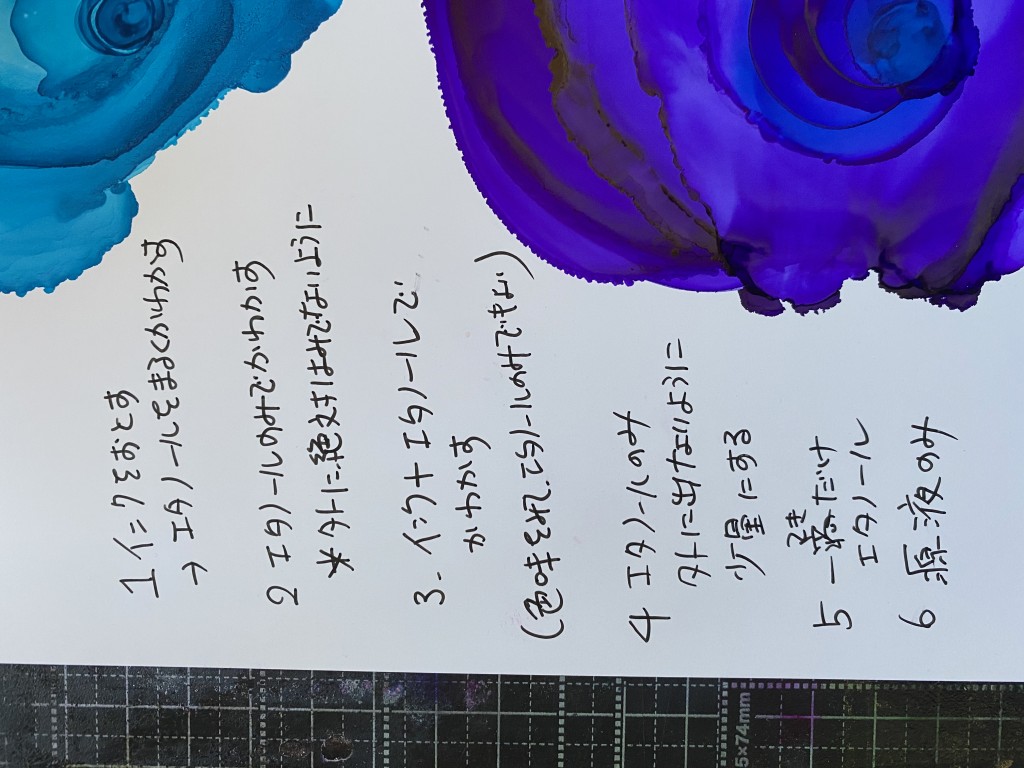 1 インクをおとす
→ エタノールをまるくかわかす
2 エタノールのみでかわかす
*外に絶対はみでないように
3. インク+エタノールで
かわかす
(色味をみて、エタノールのみでもよい)
4 エタノールのみ
外に出ないように
少量にする
5 一滴だけ
エタノール
6 原液のみ
5x74mm